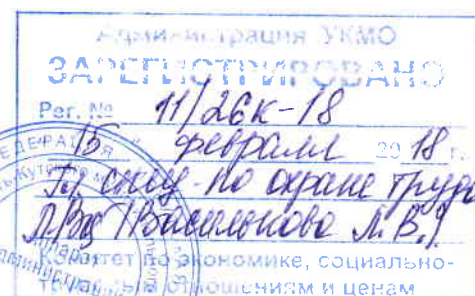 Администрация УКМО
ЗАРЕГИСТРИРОВАНО
Рег. № 11/26к-18
15 февраля 20 18 г.
Гл. спец. по охране труда
/Василькова
Комитет по экономике, социально-
трудовым отношениям и ценам